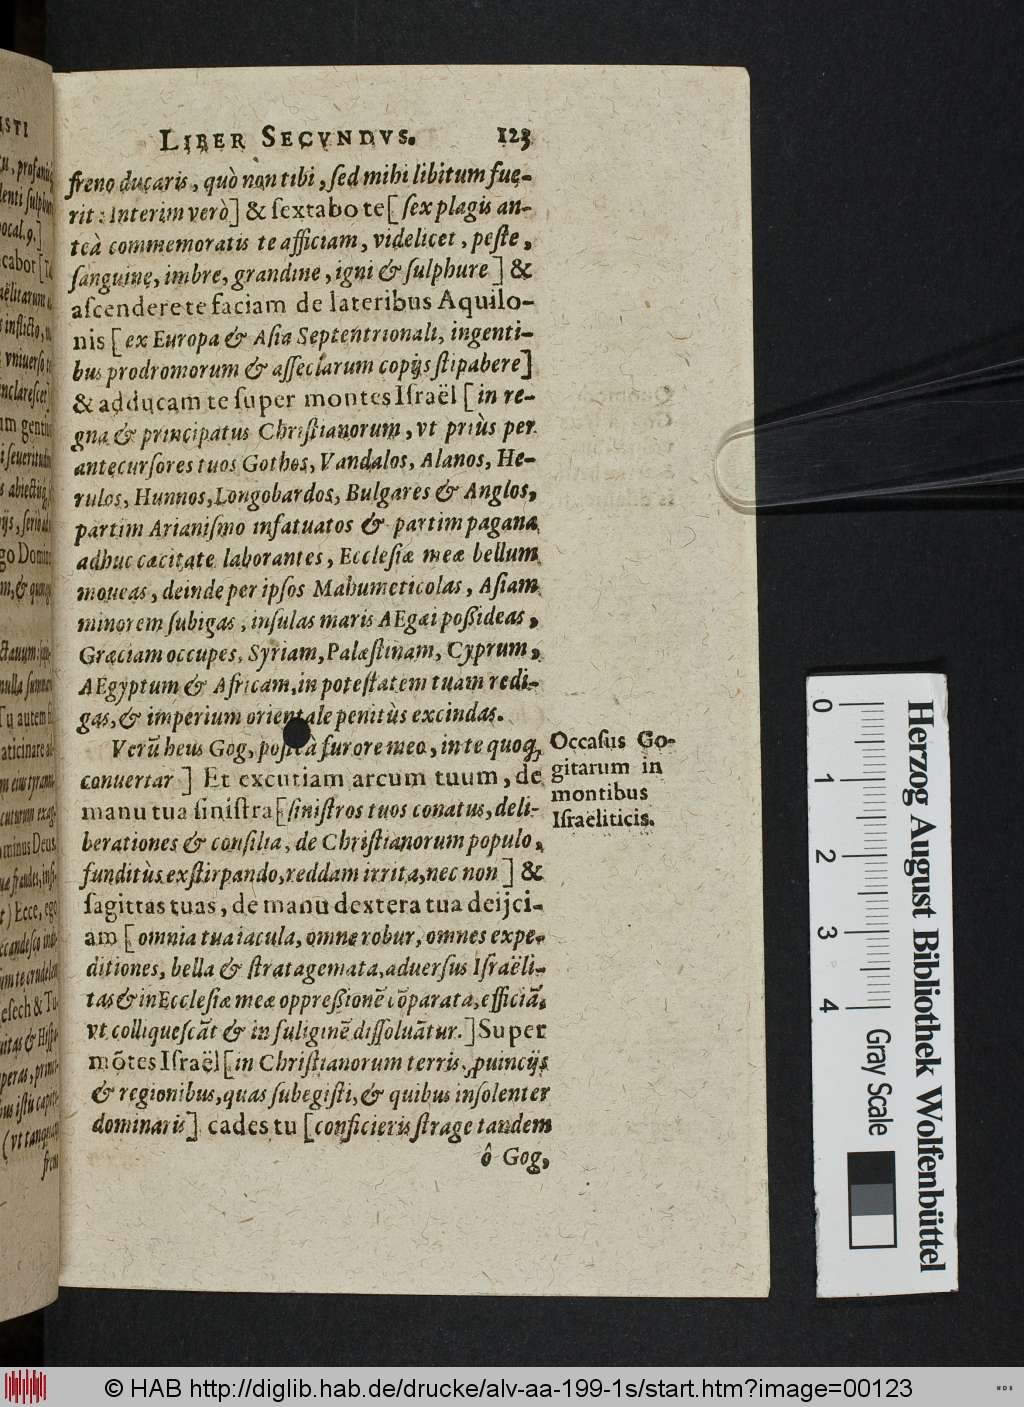 LIBER SECVNDVS. 123
freno ducaris, quò non tibi, ſed mihi libitum fue-
rit: Interim verò] & ſextabo te [ſex plagis an-
teà commemoratis te afficiam, videlicet, peſte,
ſanguine, imbre, grandine, igni & ſulphure] &
aſcendere te faciam de lateribus Aquilo-
nis [ex Europa & Aſia Septentrionali, ingenti-
bus prodromorum & aſſeclarum copijs ſtipabere]
& adducam te ſuper montes Iſraël [in re-
gna & principatus Chriſtianorum, vt priùs per
antecurſores tuos Gothos, Vandalos, Alanos, He-
rulos, Hunnos, Longobardos, Bulgares & Anglos,
partim Arianiſmo infatuatos & partim pagana
adhuc cæcitate laborantes, Eccleſiæ meæ bellum
moueas, deinde per ipſos Mahumeticolas, Aſiam
minorem ſubigas, inſulas maris AEgæi poßideas,
Græciam occupes, Syriam, Palæſtinam, Cyprum,
AEgyptum & Africam, in poteſtatem tuam redi-
gas, & imperium orientale penitùs excindas.
Verũ heus Gog, poſteà furore meo, in te quoq;
conuertar] Et excutiam arcum tuum, de
manu tua ſiniſtra [ſiniſtros tuos conatus, deli-
berationes & conſilia, de Chriſtianorum populo,
funditùs exſtirpando, reddam irrita, nec non] &
ſagittas tuas, de manu dextera tua deijci-
am [omnia tua iacula, omne robur, omnes expe-
ditiones, bella & ſtratagemata, aduerſus Iſraëli-
tas & in Eccleſiæ meæ oppreßionẽ cõparata, efficiã,
vt colliqueſcãt & in fuliginẽ diſſoluãtur.] Super
mõtes Iſraël [in Chriſtianorum terris, ꝓuincijs
& regionibus, quas ſubegiſti, & quibus inſolenter
dominaris] cades tu [conficieris ſtrage tandem
ô Gog,
Occaſus Go-
gitarum in
montibus
Iſraëliticis.
0 1 2 3 4
Gray Scale
Herzog August Bibliothek Wolfenbüttel
© HAB http://diglib.hab.de/drucke/alv-aa-199-1s/start.htm?image=00123